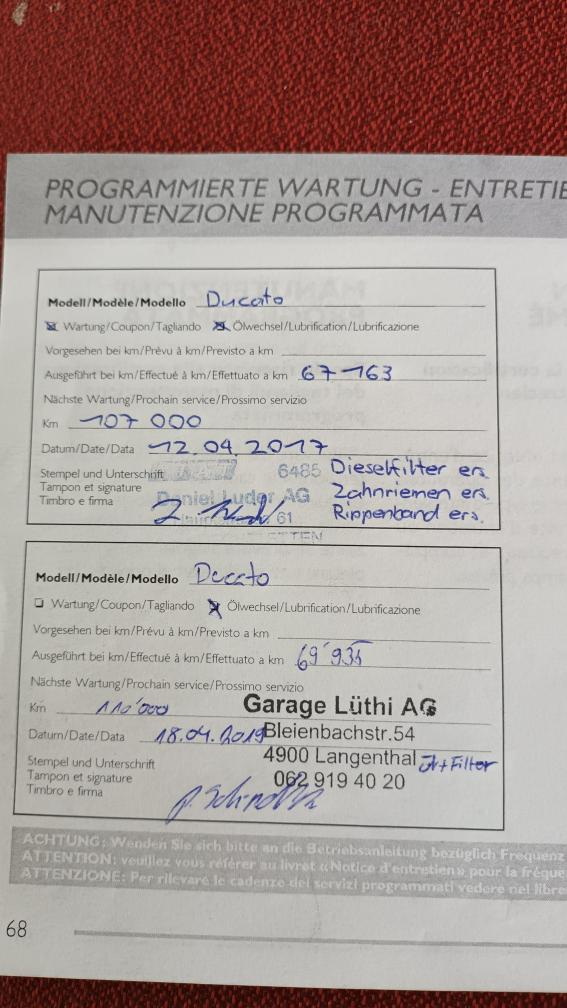 PROGRAMMIERTE WARTUNG - ENTRETIE
MANUTENZIONE PROGRAMMATA
Modell/Modèle/Modello Ducato
Wartung/Coupon/Tagliando Ölwechsel/Lubrification/Lubrificazione
Vorgesehen bei km/Prévu à km/Previsto a km
Ausgeführt bei km/Effectué à km/Effettuato a km 67 163
Nächste Wartung/Prochain service/Prossimo servizio
Km 107 000
Datum/Date/Data 12.04.2017
Stempel und Unterschrift 6485 Dieselfilter ers.
Tampon et signature Daniel Luder AG Zahnriemen ers.
Timbro e firma 61 Rippenband ers.
Modell/Modèle/Modello Ducato
Wartung/Coupon/Tagliando Ölwechsel/Lubrification/Lubrificazione
Vorgesehen bei km/Prévu à km/Previsto a km
Ausgeführt bei km/Effectué à km/Effettuato a km 69'935
Nächste Wartung/Prochain service/Prossimo servizio
Km 110'000 Garage Lüthi AG
Datum/Date/Data 18.04.2019 Bleienbachstr.54
Stempel und Unterschrift 4900 Langenthal Öl+Filter
Tampon et signature 062 919 40 20
Timbro e firma
ACHTUNG: Wenden Sie sich bitte an die Betriebsanleitung bezüglich Frequenz
ATTENTION: veuillez vous référer au livret «Notice d'entretien» pour la fréque
ATTENZIONE: Per rilevare le cadenze dei servizi programmati vedere nel libre
68